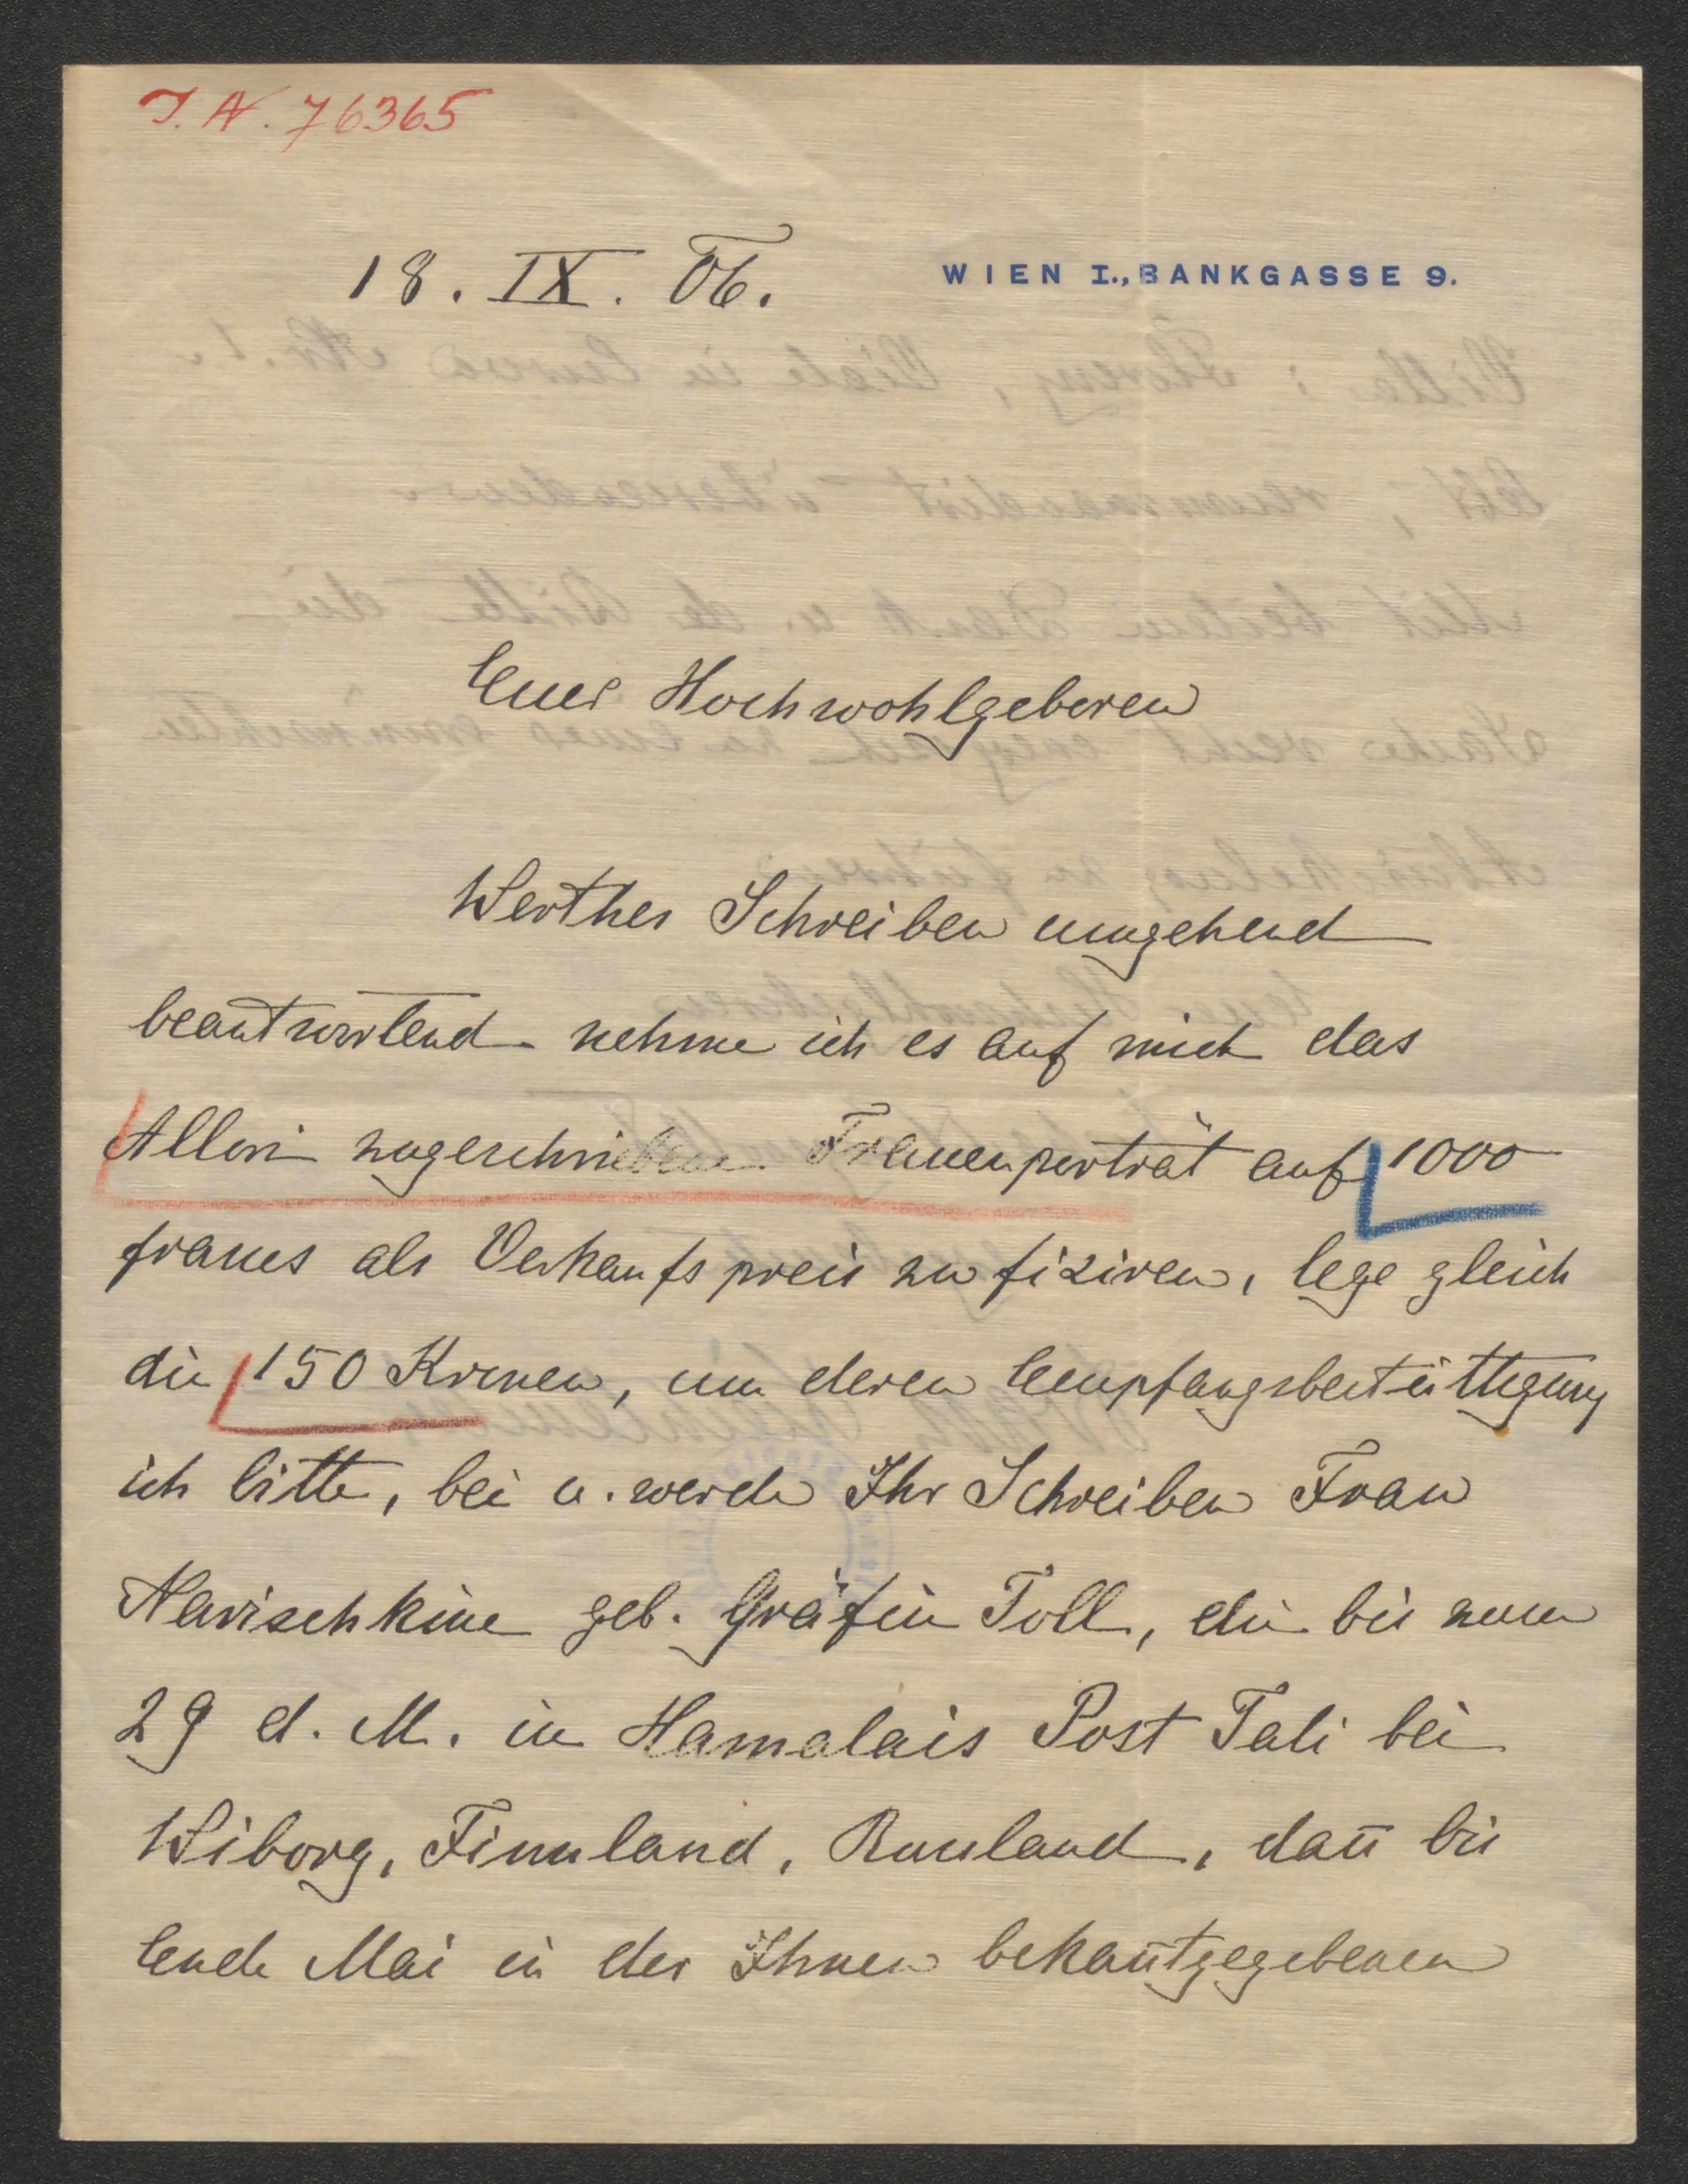 J. N. 76365
18. IX. 06. WIEN I., BANKGASSE 9.
Euer Hochwohlgeboren
Werthes Schreiben umgehend
beantwortend nehme ich es auf mich das
Allori zugeschriebene Frauenporträt auf 1000
francs als Verkaufspreis zu fixiren, lege gleich
die 150 Kronen, um deren Empfangsbestättigung
ich bitte, bei u. werde Ihr Schreiben Frau
Narischkine geb. Gräfin Toll, die bis zum
29 d. M. in Hamalais Post Tali bei
Wiborg, Finnland, Russland, dan̄ bis
Ende Mai in der Ihnen bekan̄tgegebenen